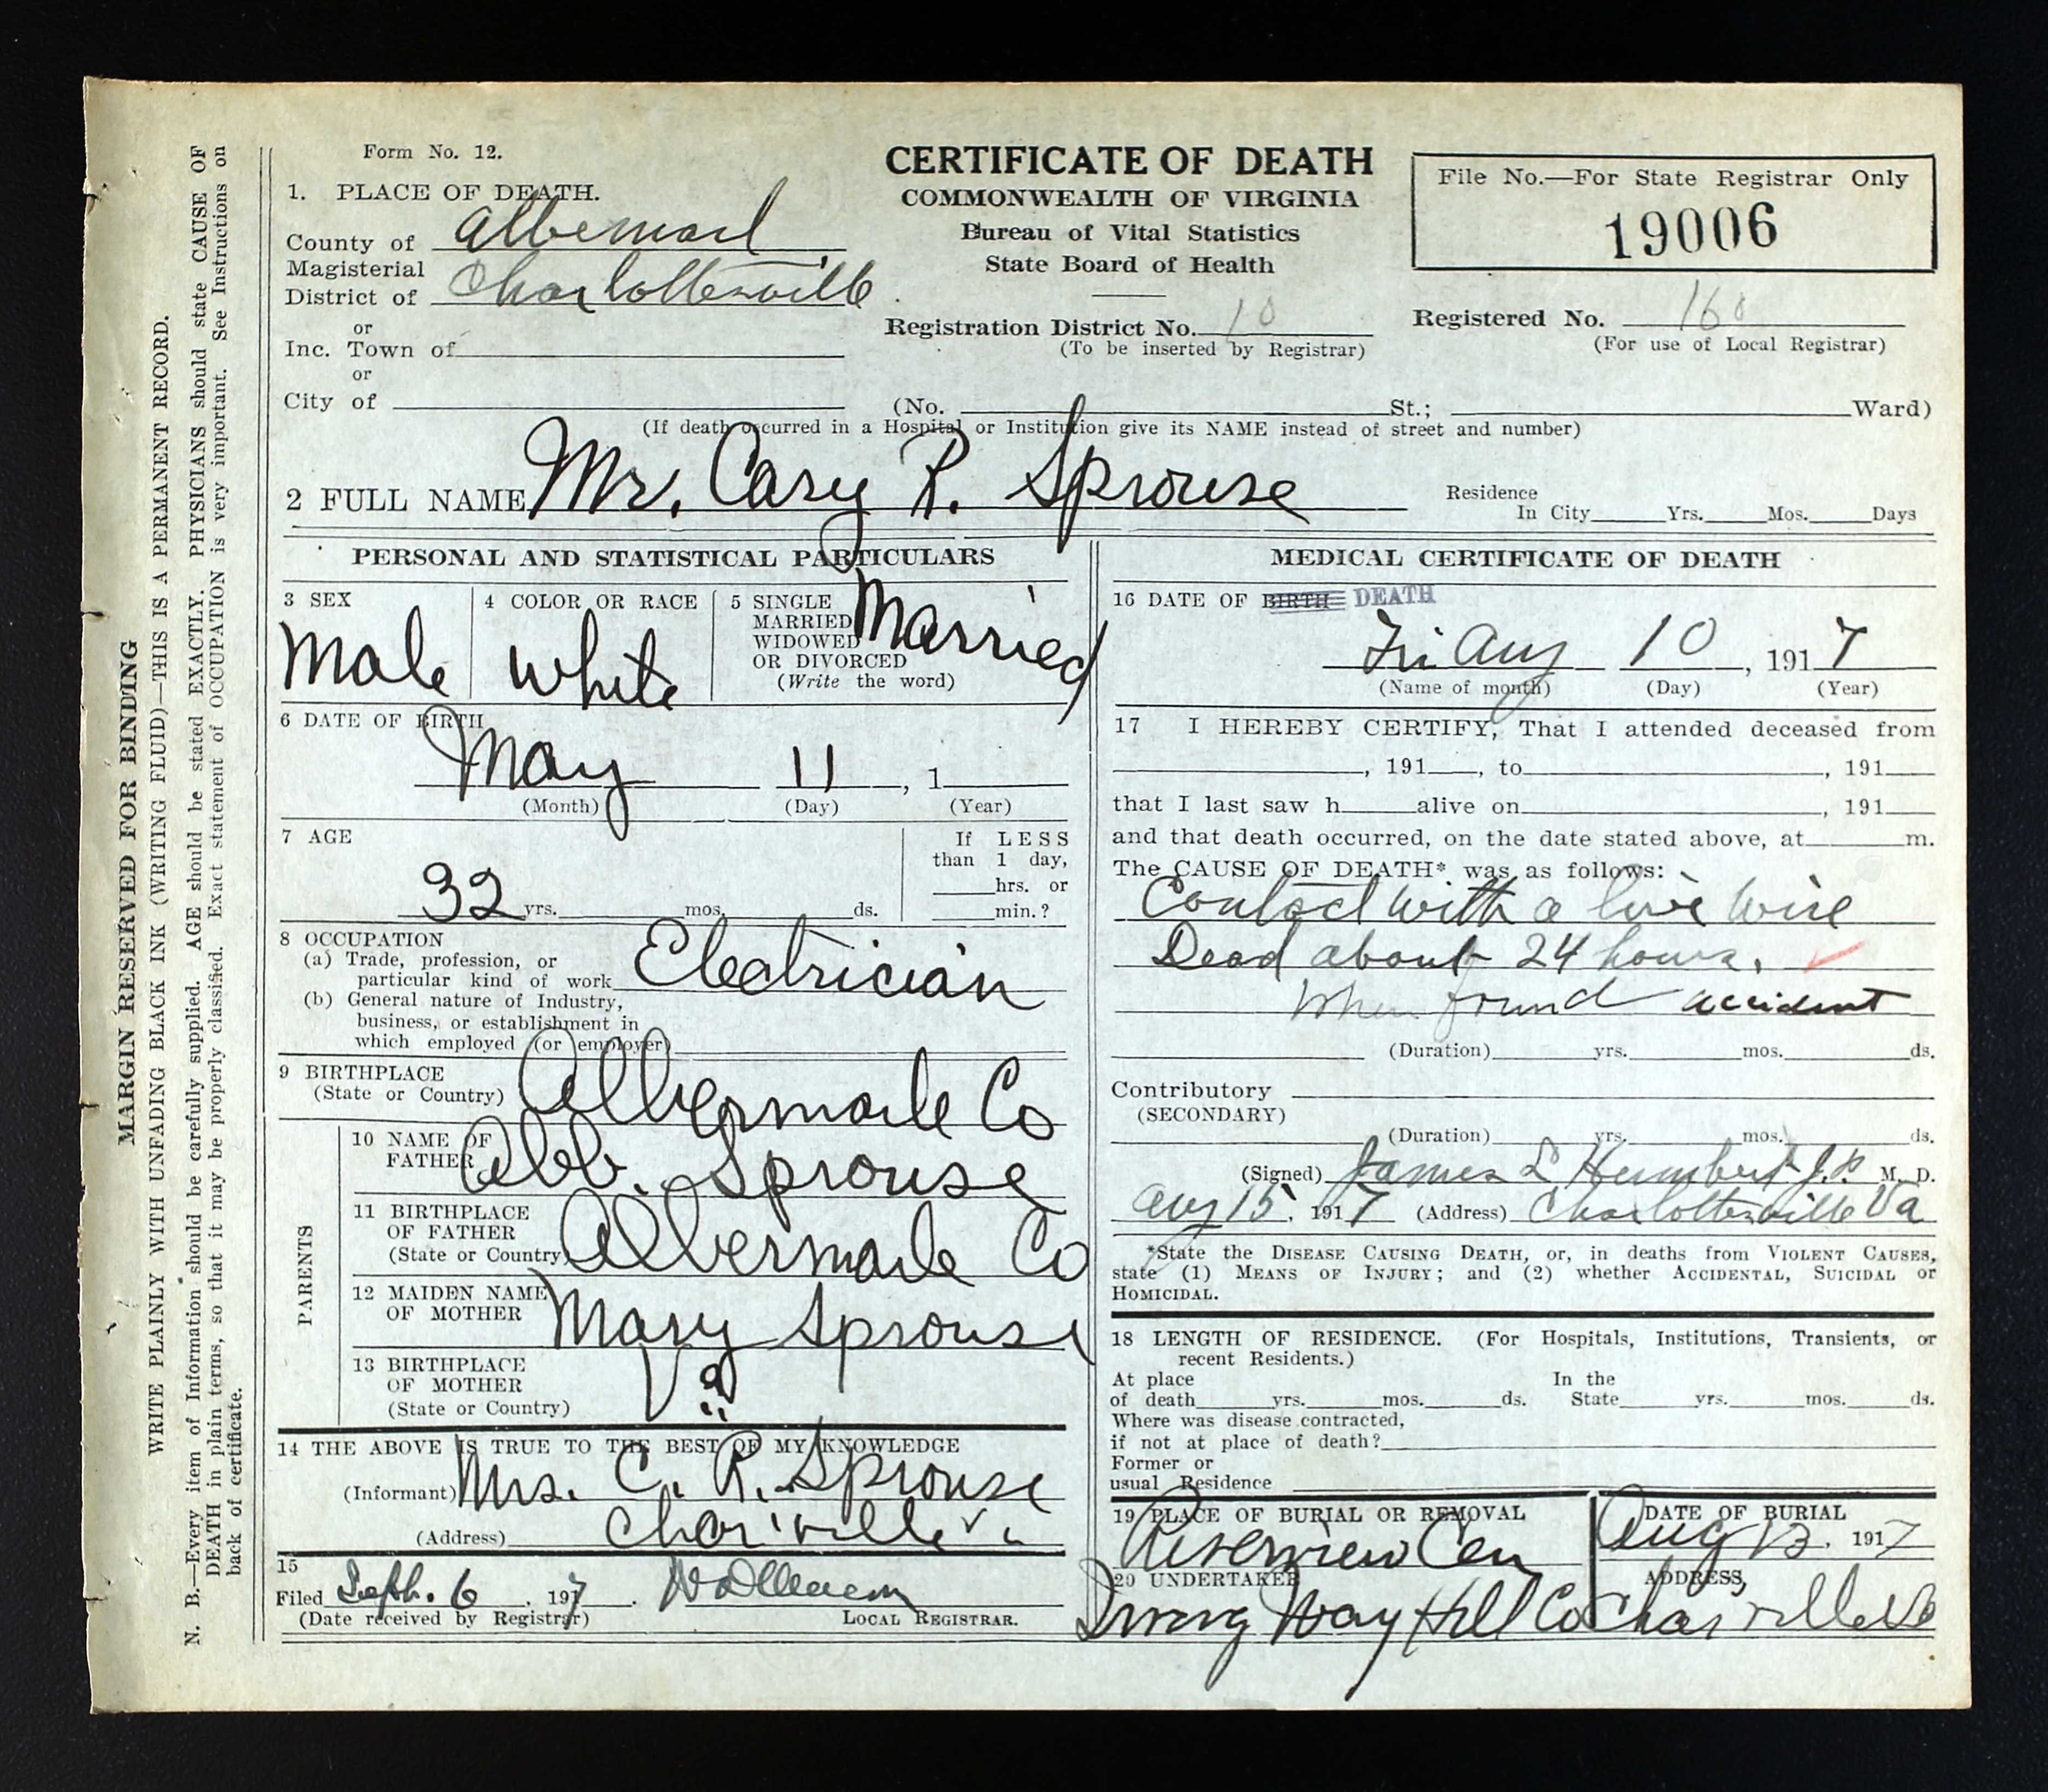 Form No. 12.
CERTIFICATE OF DEATH
COMMONWEALTH OF VIRGINIA
Bureau of Vital Statistics
State Board of Health
File No.—For State Registrar Only
19006
1. PLACE OF DEATH.
County of Albemarl
Magisterial
District of Charlottesville
or
Inc. Town of
or
City of
Registration District No. 10
(To be inserted by Registrar)
Registered No. 160
(For use of Local Registrar)
(No. St.; Ward)
(If death occurred in a Hospital or Institution give its NAME instead of street and number)
2 FULL NAME Mr. Cary R. Sprouse
Residence
In City Yrs. Mos. Days
PERSONAL AND STATISTICAL PARTICULARS
3 SEX
Male
4 COLOR OR RACE
White
5 SINGLE
MARRIED
WIDOWED
OR DIVORCED
(Write the word)
Married
6 DATE OF BIRTH
May 11, 1
(Month) (Day) (Year)
7 AGE
32 yrs. mos. ds.
If LESS
than 1 day,
hrs. or
min.?
8 OCCUPATION
(a) Trade, profession, or
particular kind of work Electrician
(b) General nature of Industry,
business, or establishment in
which employed (or employer)
9 BIRTHPLACE
(State or Country) Albermarle Co
PARENTS
10 NAME OF
FATHER Abb. Sprouse
11 BIRTHPLACE
OF FATHER
(State or Country) Albermarle Co
12 MAIDEN NAME
OF MOTHER Mary Sprouse
13 BIRTHPLACE
OF MOTHER
(State or Country) Va
14 THE ABOVE IS TRUE TO THE BEST OF MY KNOWLEDGE
(Informant) Mrs. C. R. Sprouse
(Address) Char'ville Va
15
Filed Seph. 6, 1917.
(Date received by Registrar) LOCAL REGISTRAR.
MEDICAL CERTIFICATE OF DEATH
16 DATE OF BIRTH DEATH
Fri Aug 10, 1917
(Name of month) (Day) (Year)
17 I HEREBY CERTIFY, That I attended deceased from
, 191 , to , 191
that I last saw h alive on , 191
and that death occurred, on the date stated above, at m.
The CAUSE OF DEATH* was as follows:
Contact with a live wire
Dead about 24 hours.
When found accident
(Duration) yrs. mos. ds.
Contributory
(SECONDARY)
(Duration) yrs. mos. ds.
(Signed) James L Humbert J.P. M. D.
Aug 15, 1917 (Address) Charlottesville Va
*State the DISEASE CAUSING DEATH, or, in deaths from VIOLENT CAUSES,
state (1) MEANS OF INJURY; and (2) whether ACCIDENTAL, SUICIDAL or
HOMICIDAL.
18 LENGTH OF RESIDENCE. (For Hospitals, Institutions, Transients, or
recent Residents.)
At place In the
of death yrs. mos. ds. State yrs. mos. ds.
Where was disease contracted,
if not at place of death?
Former or
usual Residence
19 PLACE OF BURIAL OR REMOVAL
Riverview Cem
DATE OF BURIAL
Aug 13, 1917
20 UNDERTAKER
Irving Way Hill Co
ADDRESS,
Char'ville Va
MARGIN RESERVED FOR BINDING
WRITE PLAINLY WITH UNFADING BLACK INK (WRITING FLUID)—THIS IS A PERMANENT RECORD.
N. B.—Every item of Information should be carefully supplied. AGE should be stated EXACTLY. PHYSICIANS should state CAUSE OF
DEATH in plain terms, so that it may be properly classified. Exact statement of OCCUPATION is very important. See Instructions on
back of certificate.